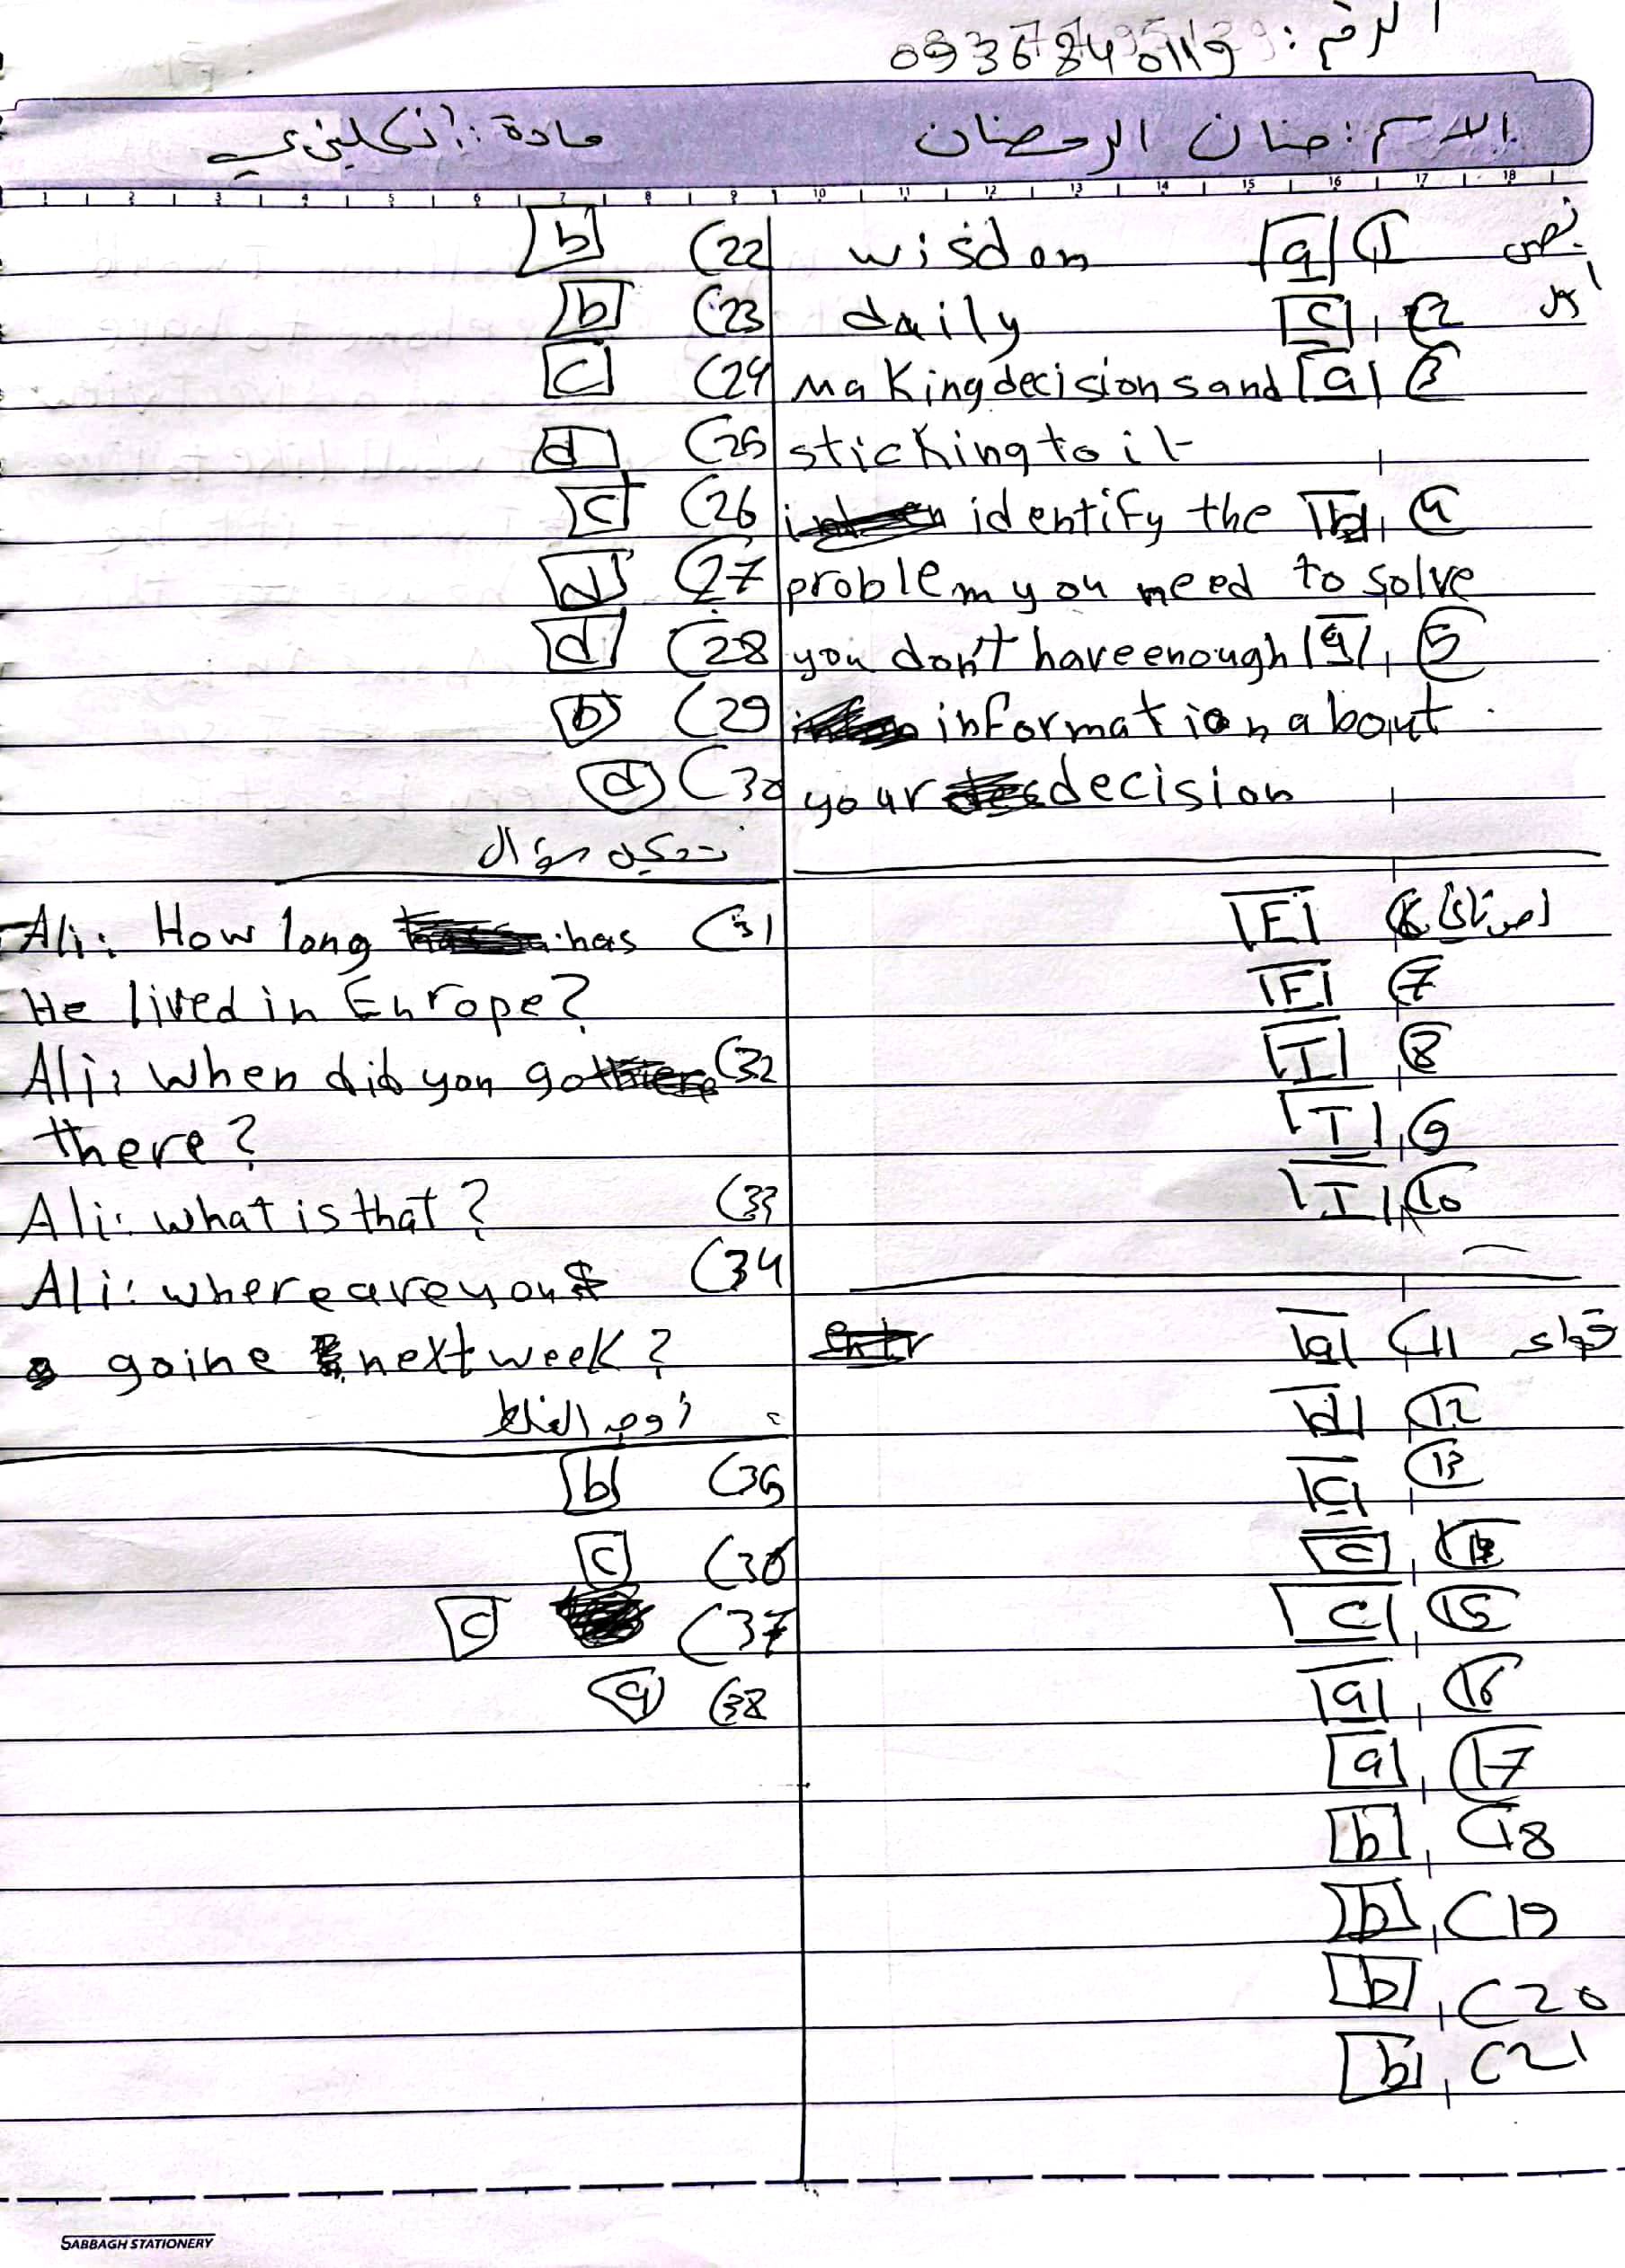 الرقم:
الاسم: حنان الرمضان مادة: انكليزي
1 2 3 4 5 6 7 8 9 10 11 12 13 14 15 16 17 18
نص
1) a wisdom
2) c daily
3) a making decisions and
sticking to it
4) b identify the
problem you need to solve
5) a you don't have enough
information about
your decision
6) F
7) F
8) T
9) T
10) T
قواعد 11) a
12) d
13) c
14) c
15) c
16) a
17) a
18) b
19) b
20) b
21) b
22) b
23) b
24) c
25) d
26) c
27) d
28) d
29) b
30) d
تشكيل سؤال
31) Ali: How long has
He lived in Europe?
32) Ali: when did you go
there?
33) Ali: what is that?
34) Ali: where are you
goine next week?
زوج الخاطئ
35) b
36) c
37) c
38) a
SABBAGH STATIONERY